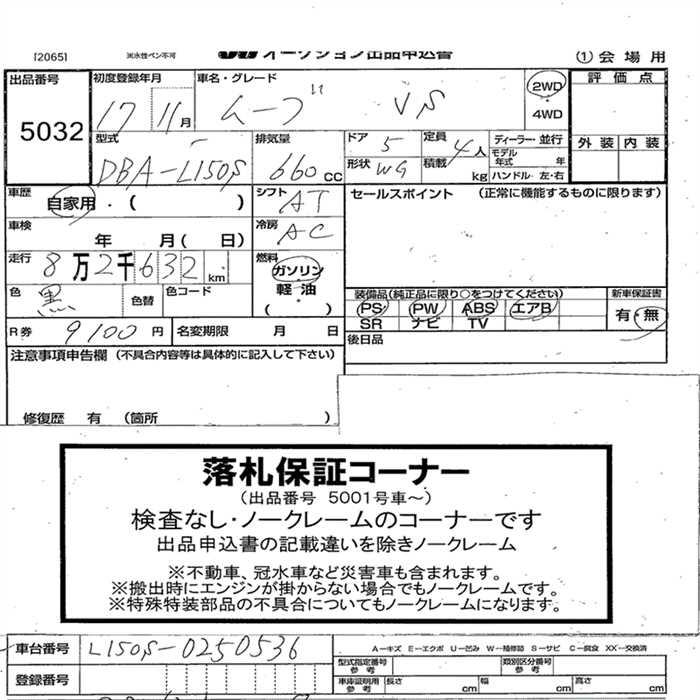 [2065] ※水性ペン不可 オークション出品申込書 (1)会場用
出品番号 初度登録年月 車名・グレード 2WD 評価点
5032 17 11月 ムーブ VS ・4WD
型式 排気量 ドア 5 定員 4人 ディーラー・並行 外装 内装
モデル年式 年
DBA-L150S 660cc 形状 WG 積載 kg ハンドル 左・右
車歴 自家用・( ) シフト AT セールスポイント (正常に機能するものに限ります)
車検 年 月( 日) 冷房 AC
走行 8万2千632km 燃料 ガソリン
軽・油
( )
色 黒 色替 色コード 装備品(純正品に限り○をつけてください) 新車保証書
PS PW ABS エアB 有・無
SR ナビ TV
R券 9100円 名変期限 月 日 後日品
注意事項申告欄 (不具合内容等は具体的に記入して下さい)
修復歴 有 (箇所 )
落札保証コーナー
(出品番号 5001号車~)
検査なし・ノークレームのコーナーです
出品申込書の記載違いを除きノークレーム
※不動車、冠水車など災害車も含まれます。
※搬出時にエンジンが掛からない場合でもノークレームです。
※特殊特装部品の不具合についてもノークレームになります。
車台番号 L150S-0250536 A-キズ E-エクボ U-凹み W-補修跡 S-サビ C-腐食 XX-交換済
型式指定番号 参考 類別区分番号 参考
登録番号 車庫証明用 参考 長さ cm 幅 cm 高さ cm